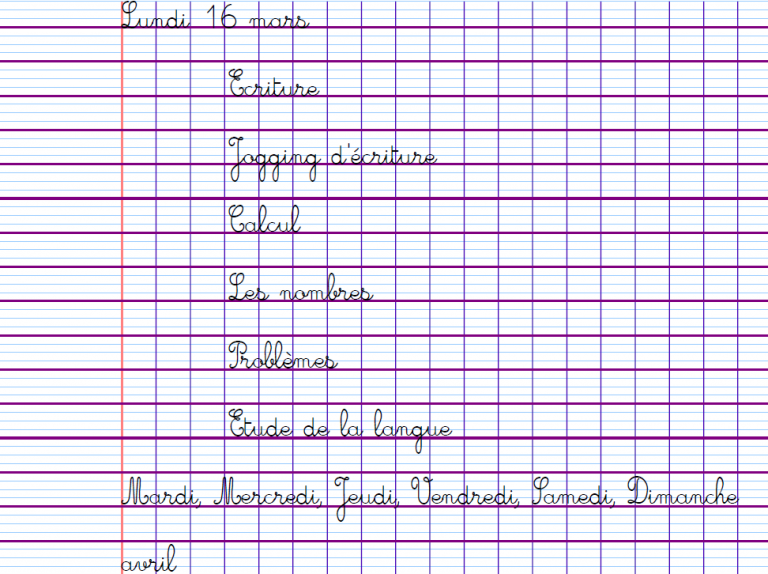 Lundi 16 mars
Ecriture
Jogging d'écriture
Calcul
Les nombres
Problèmes
Etude de la langue
Mardi, Mercredi, Jeudi, Vendredi, Samedi, Dimanche
avril